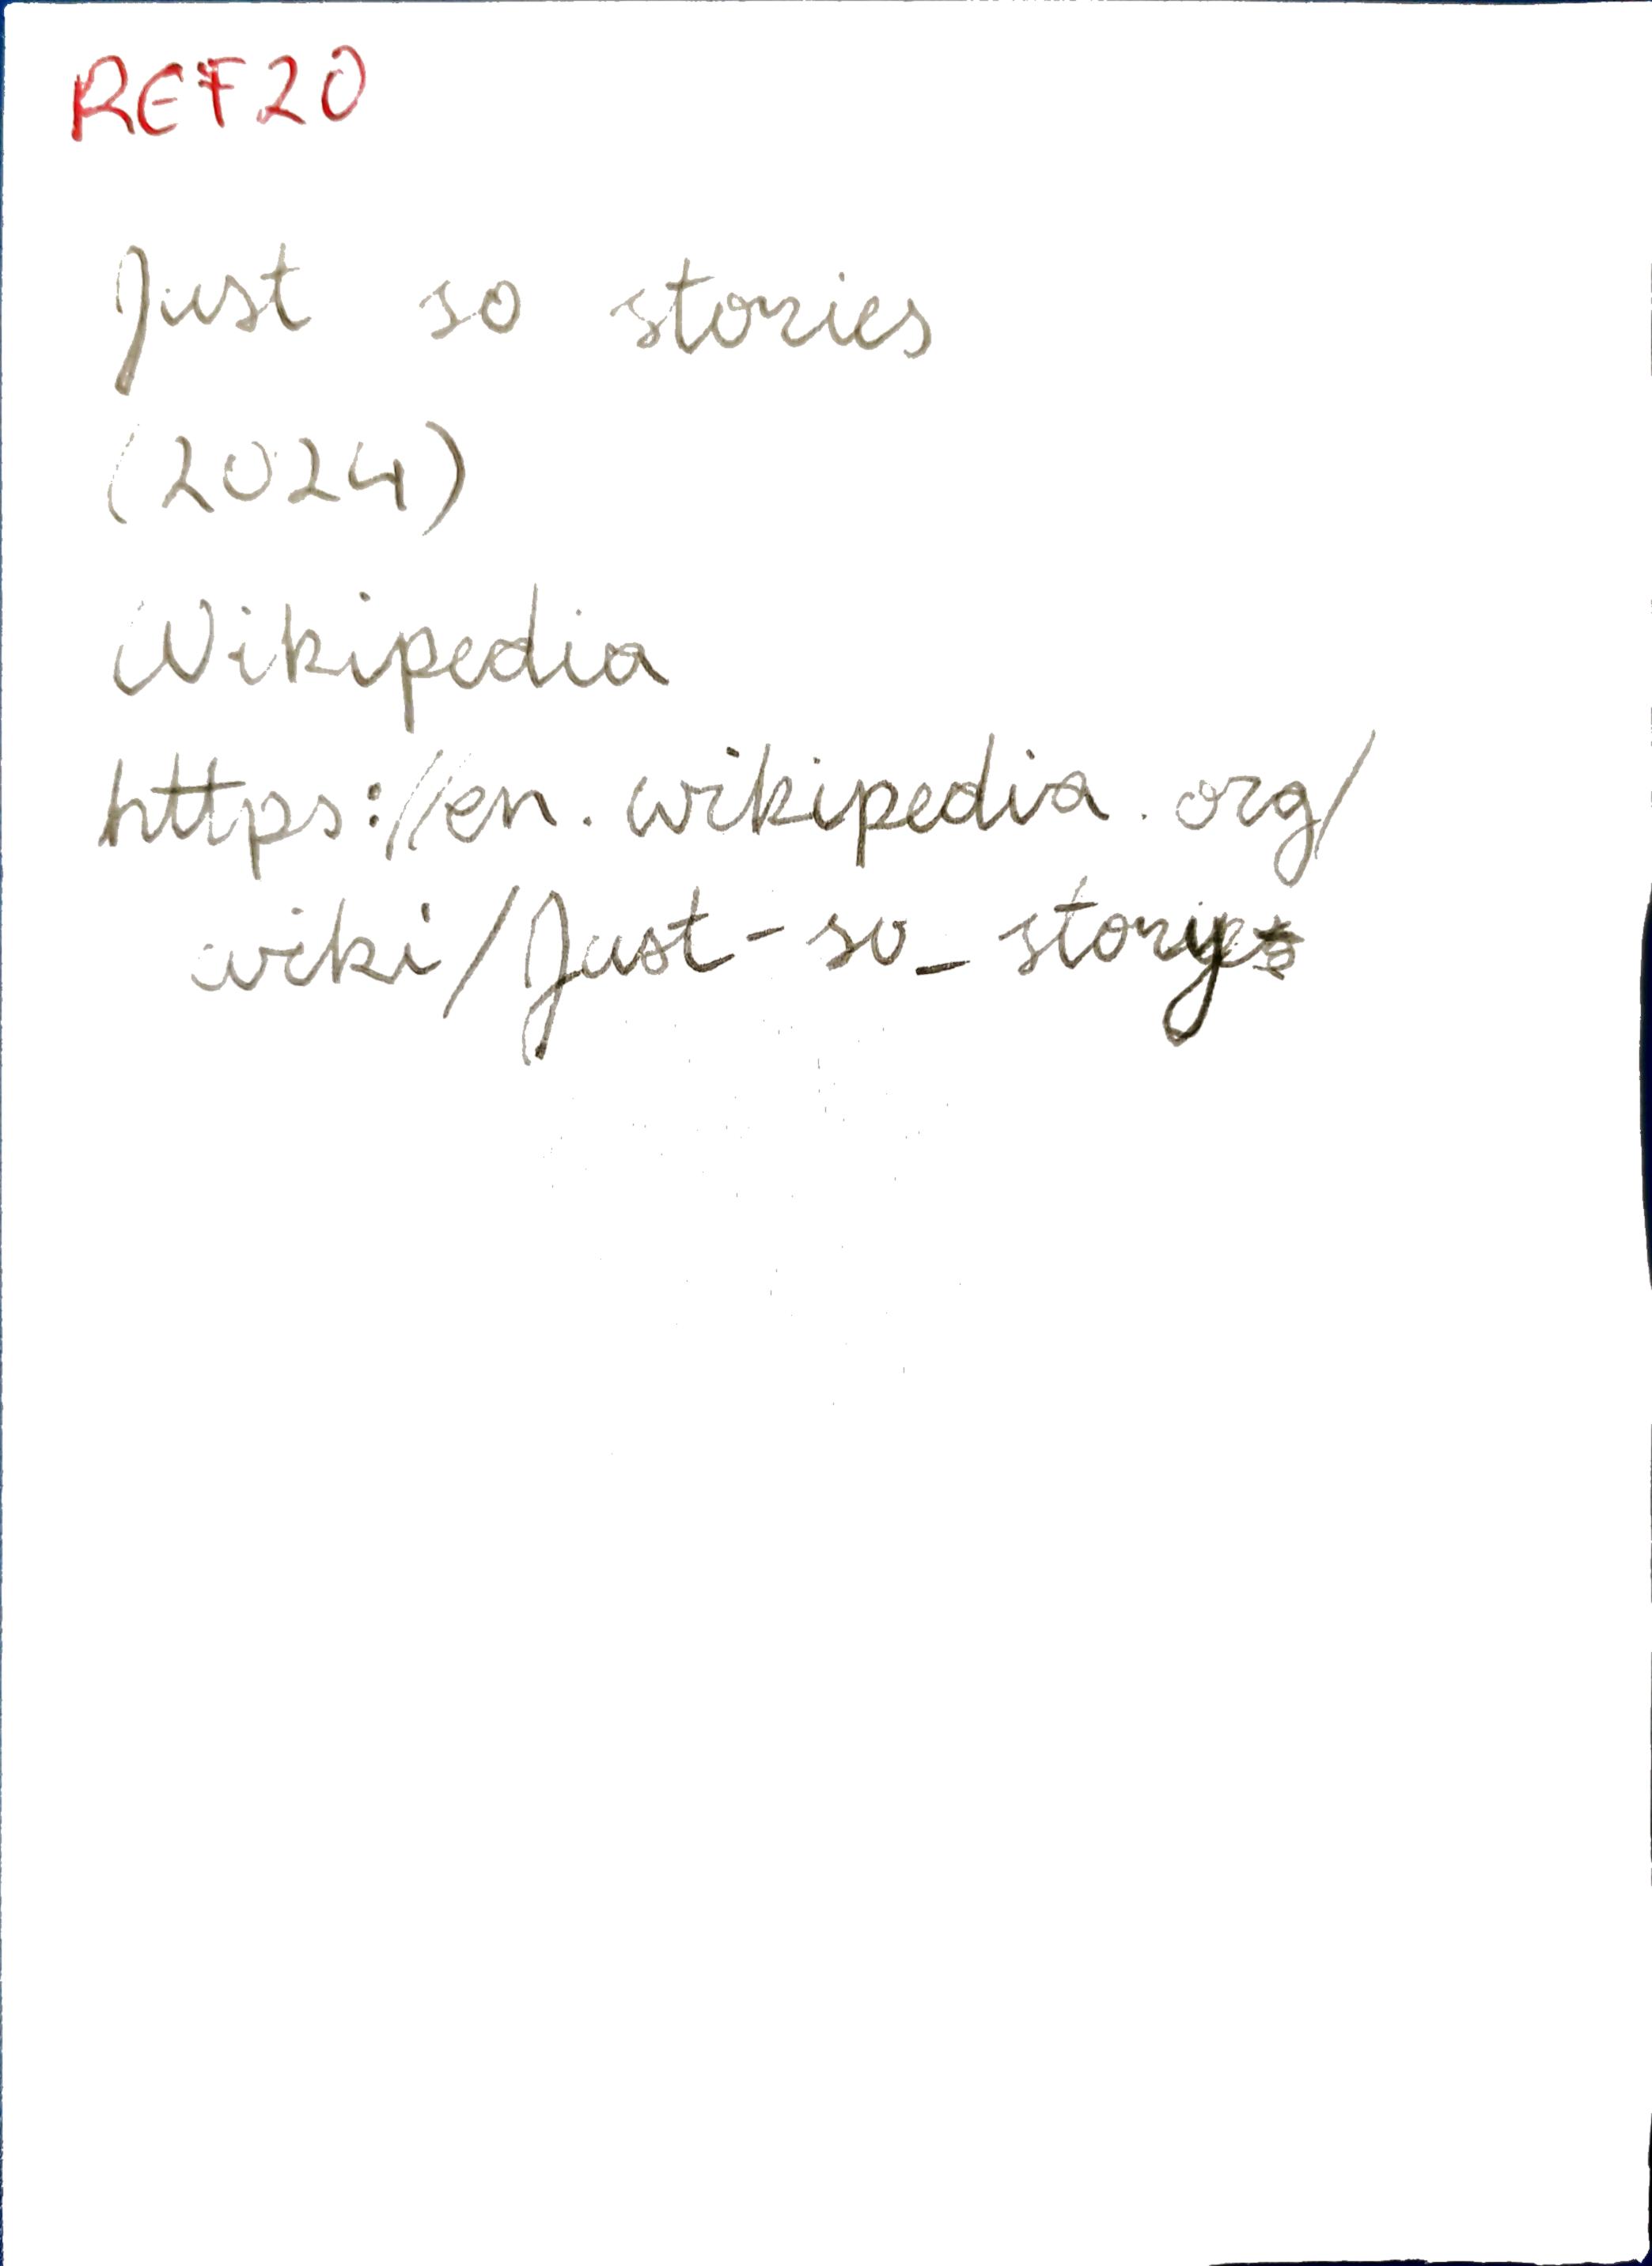 REF20
Just so stories
(2024)
Wikipedia
https://en.wikipedia.org/
wiki/Just-so_story